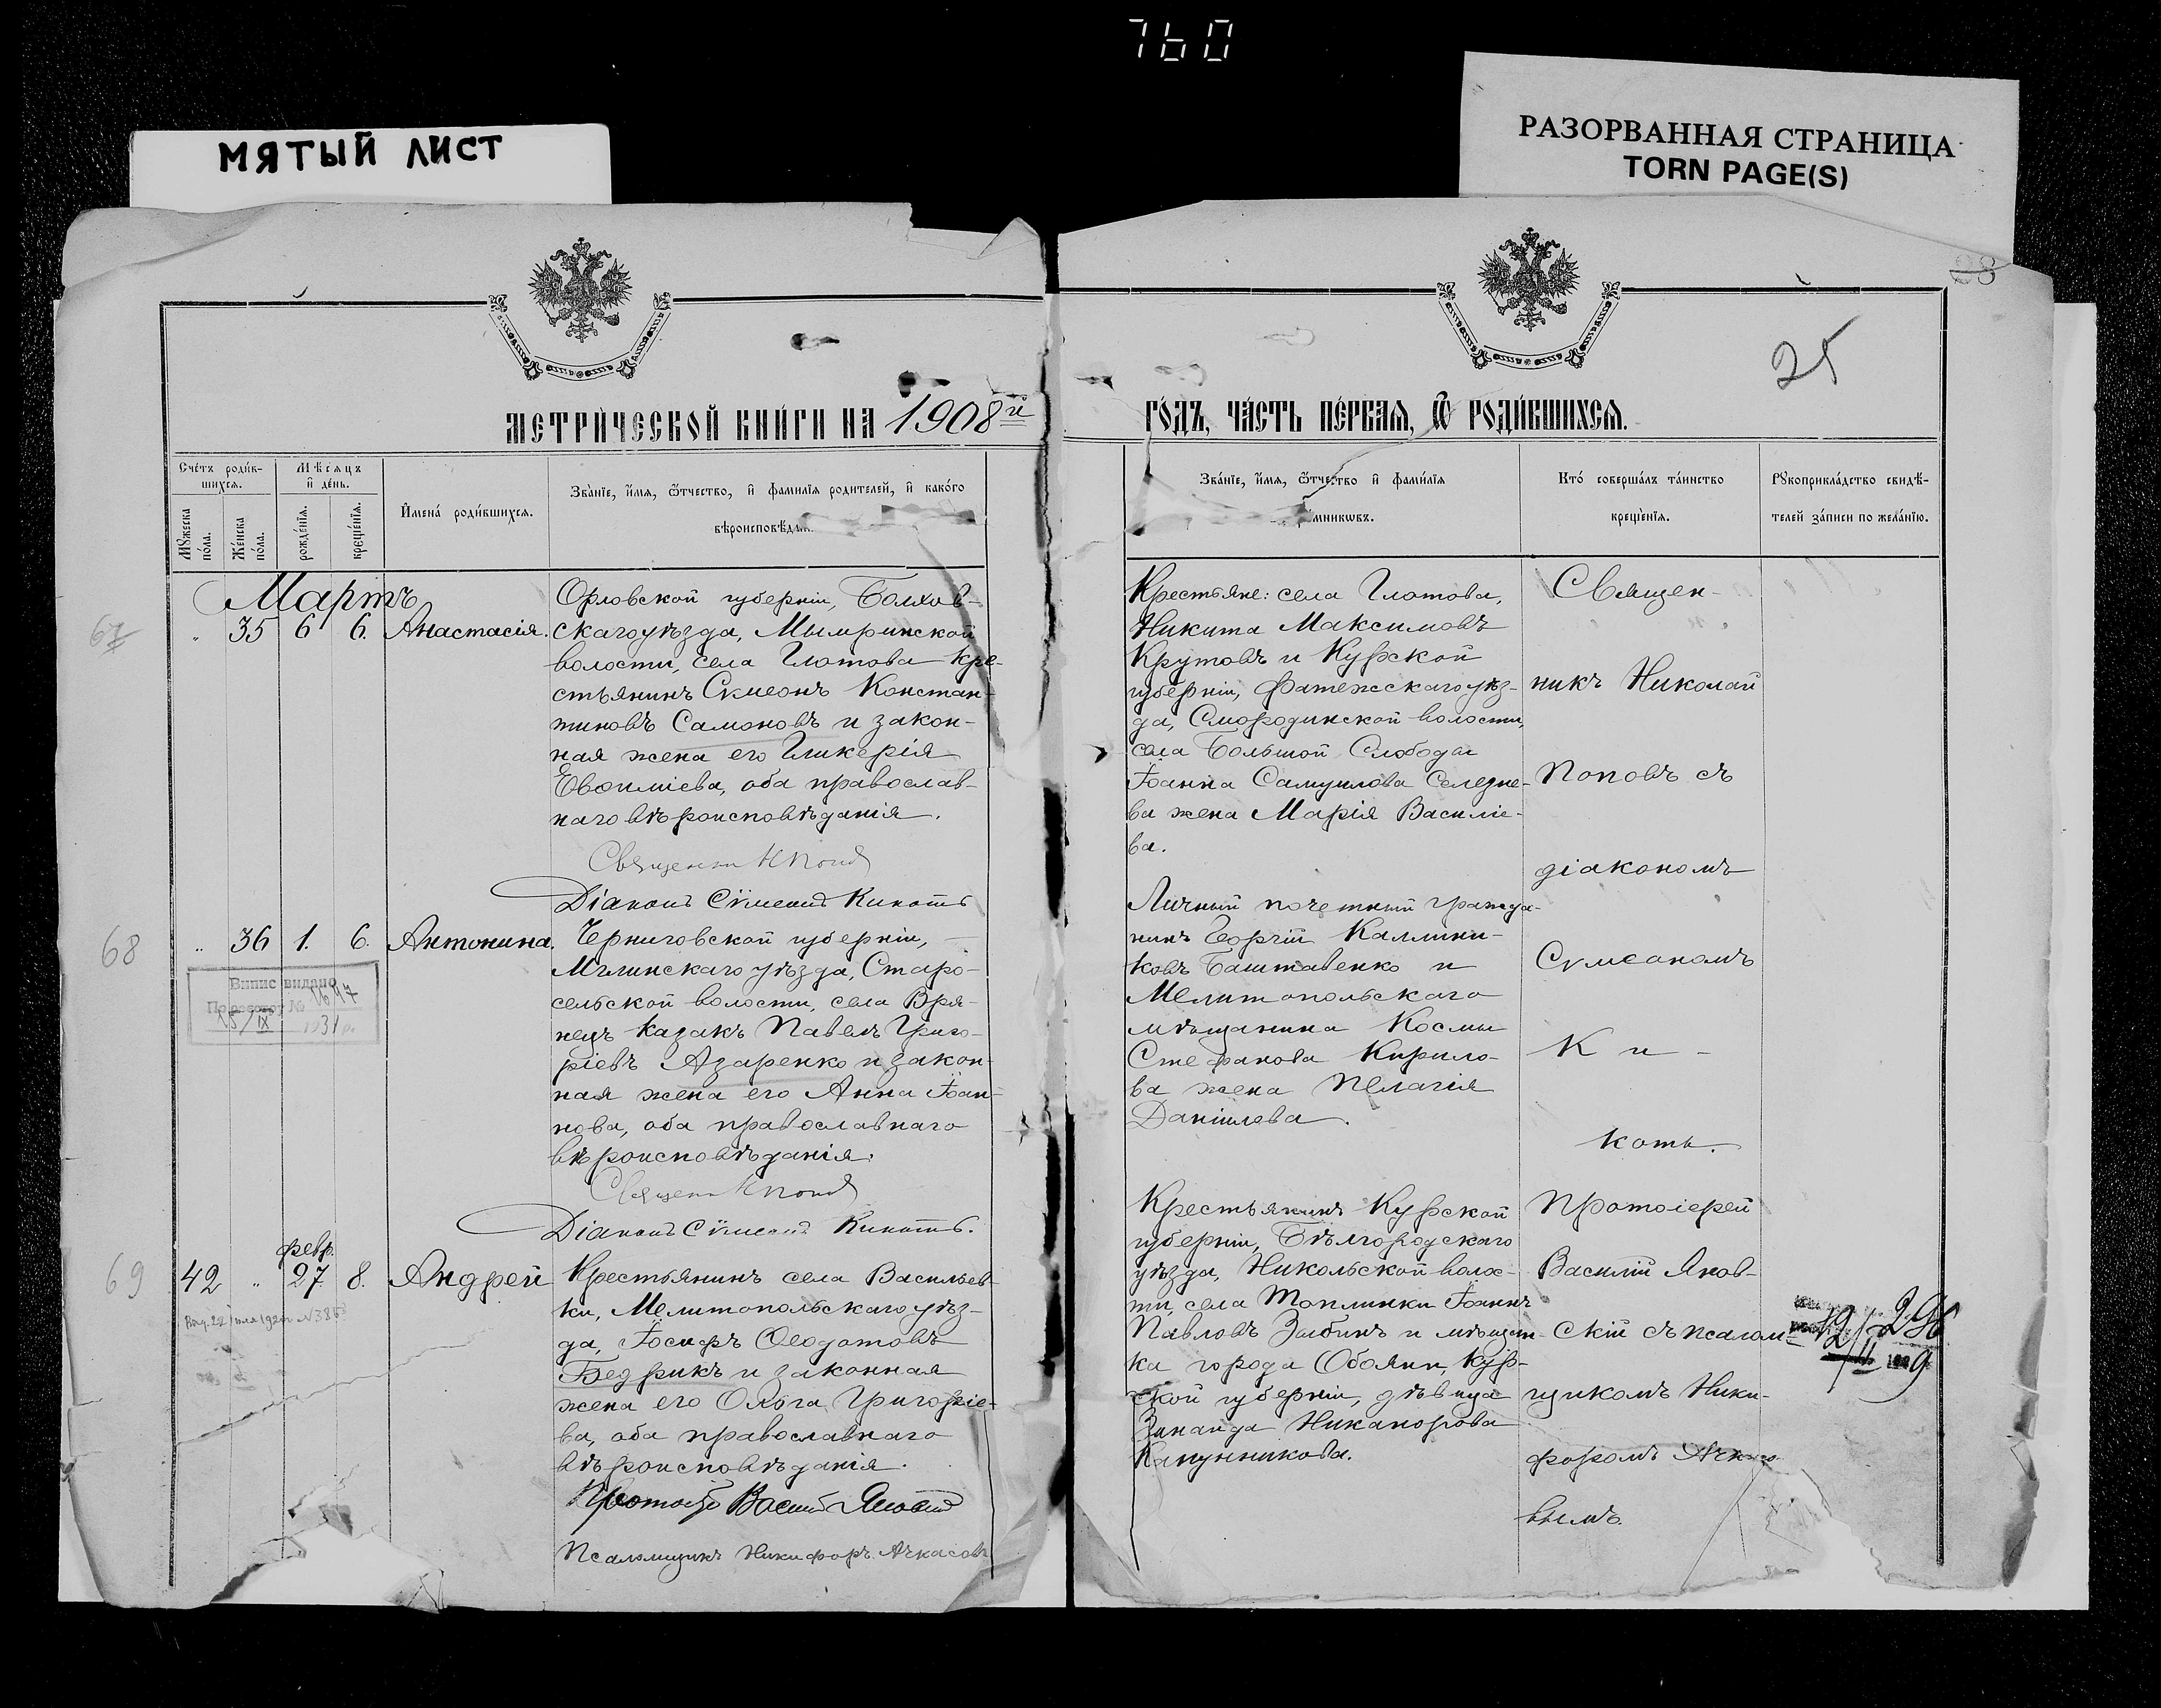 760
МЯТЫЙ ЛИСТ
РАЗОРВАННАЯ СТРАНИЦА
TORN PAGE(S)
38
25
МЕТРИЧЕСКОЙ КНИГИ НА 1908й
ГОДЪ, ЧАСТЬ ПЕРВАЯ, Ѿ РОДИВШИХСЯ.
Счетъ родив-
шихся.
Мѣсяцъ
и день.
Мужеска
пола.
Женска
пола.
рожденія.
крещенія.
Имена родившихся.
Званіе, имя, ѿчество, и фамилія родителей, и какого
вѣроисповѣдан
Званіе, имя, ѿчество и фамилія
мникωвъ.
Кто совершалъ таинство
крещенія.
Рукоприкладство свидѣ-
телей записи по желанію.
Мартъ
67
" 35 6 6. Анастасія.
Орловской губерніи, Болхов-
скаго уѣзда, Мымринской
волости, села Глотова кре-
стьянинъ Сѵмеонъ Констан-
тиновъ Самоновъ и закон-
ная жена его Гликерія
Евѳиміева, оба православ-
наго вѣроисповѣданія.
Діаконъ Сѵмеонъ Кикоть
Крестьяне: села Глотова,
Никита Максимовъ
Крутовъ и Курской
губерніи, Фатежскаго уѣз-
да, Смородинской волости,
села Большой Слободы
Іоанна Самуилова Селезне-
ва жена Марія Василіе-
ва.
Священ-
никъ Николай
Поповъ съ
діакономъ
Сѵмеономъ
Ки-
коть.
68
" 36 1. 6. Антонина.
Випис видано
15/IX 1931 р.
Черниговской губерніи,
Мглинскаго уѣзда, Старо-
сельской волости, села Вря-
нецъ казакъ Павелъ Григо-
ріевъ Азаренко и закон-
ная жена его Анна Іоан-
нова, оба православнаго
вѣроисповѣданія.
Діаконъ Сѵмеонъ Кикоть.
Личный почетный гражда-
нинъ Георгій Каллини-
ковъ Баштавенко и
Мелитопольскаго
мѣщанина Космы
Стефанова Кирило-
ва жена Пелагія
Даніилева.
69
февр.
42 " 27. 8. Андрей
Крестьянинъ села Васильев-
ки, Мелитопольскаго уѣз-
да, Іосифъ Ѳеодотовъ
Бедрикъ и законная
жена его Ольга Григоріе-
ва, оба православнаго
вѣроисповѣданія.
Псаломщикъ Никифоръ Ачкасовъ
Крестьянинъ Курской
губерніи, Бѣлгородскаго
уѣзда, Никольской волос-
ти, села Топлинки Іоаннъ
Павловъ Зыбинъ и мѣщан-
ка города Обояни, Кур-
ской губерніи, дѣвица
Зинаида Никанорова
Капунникова.
Протоіерей
Василій Яков-
скій съ псалом-
щикомъ Ники-
форомъ Ачкасо-
вымъ.